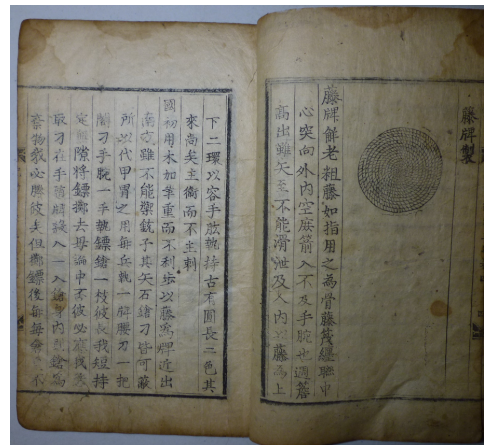 藤牌製
藤牌觧老粗藤如指用之為骨藤篾纏聯中
心突向外內空庶箭入不及手腕也週簷
高出雖矢至不能滑泄及人內以藤為上
下二環以容手肱執持古有圓長二色其
來尚矣主衛而不主刺
國初用木加革重而不利步以藤為牌近出
南方雖不能禦銃子其矢石鎗刀皆可蔽
所以代甲冑之用每兵執一牌腰刀一把
閣刀手腕一手執鏢鎗一枝彼長我短持
定隙將鏢擲去毋論中不彼必應我失
取刀在手隨牌殺入一入鎗身內彼鎗為
棄物我必勝彼矣但擲鏢後每每不